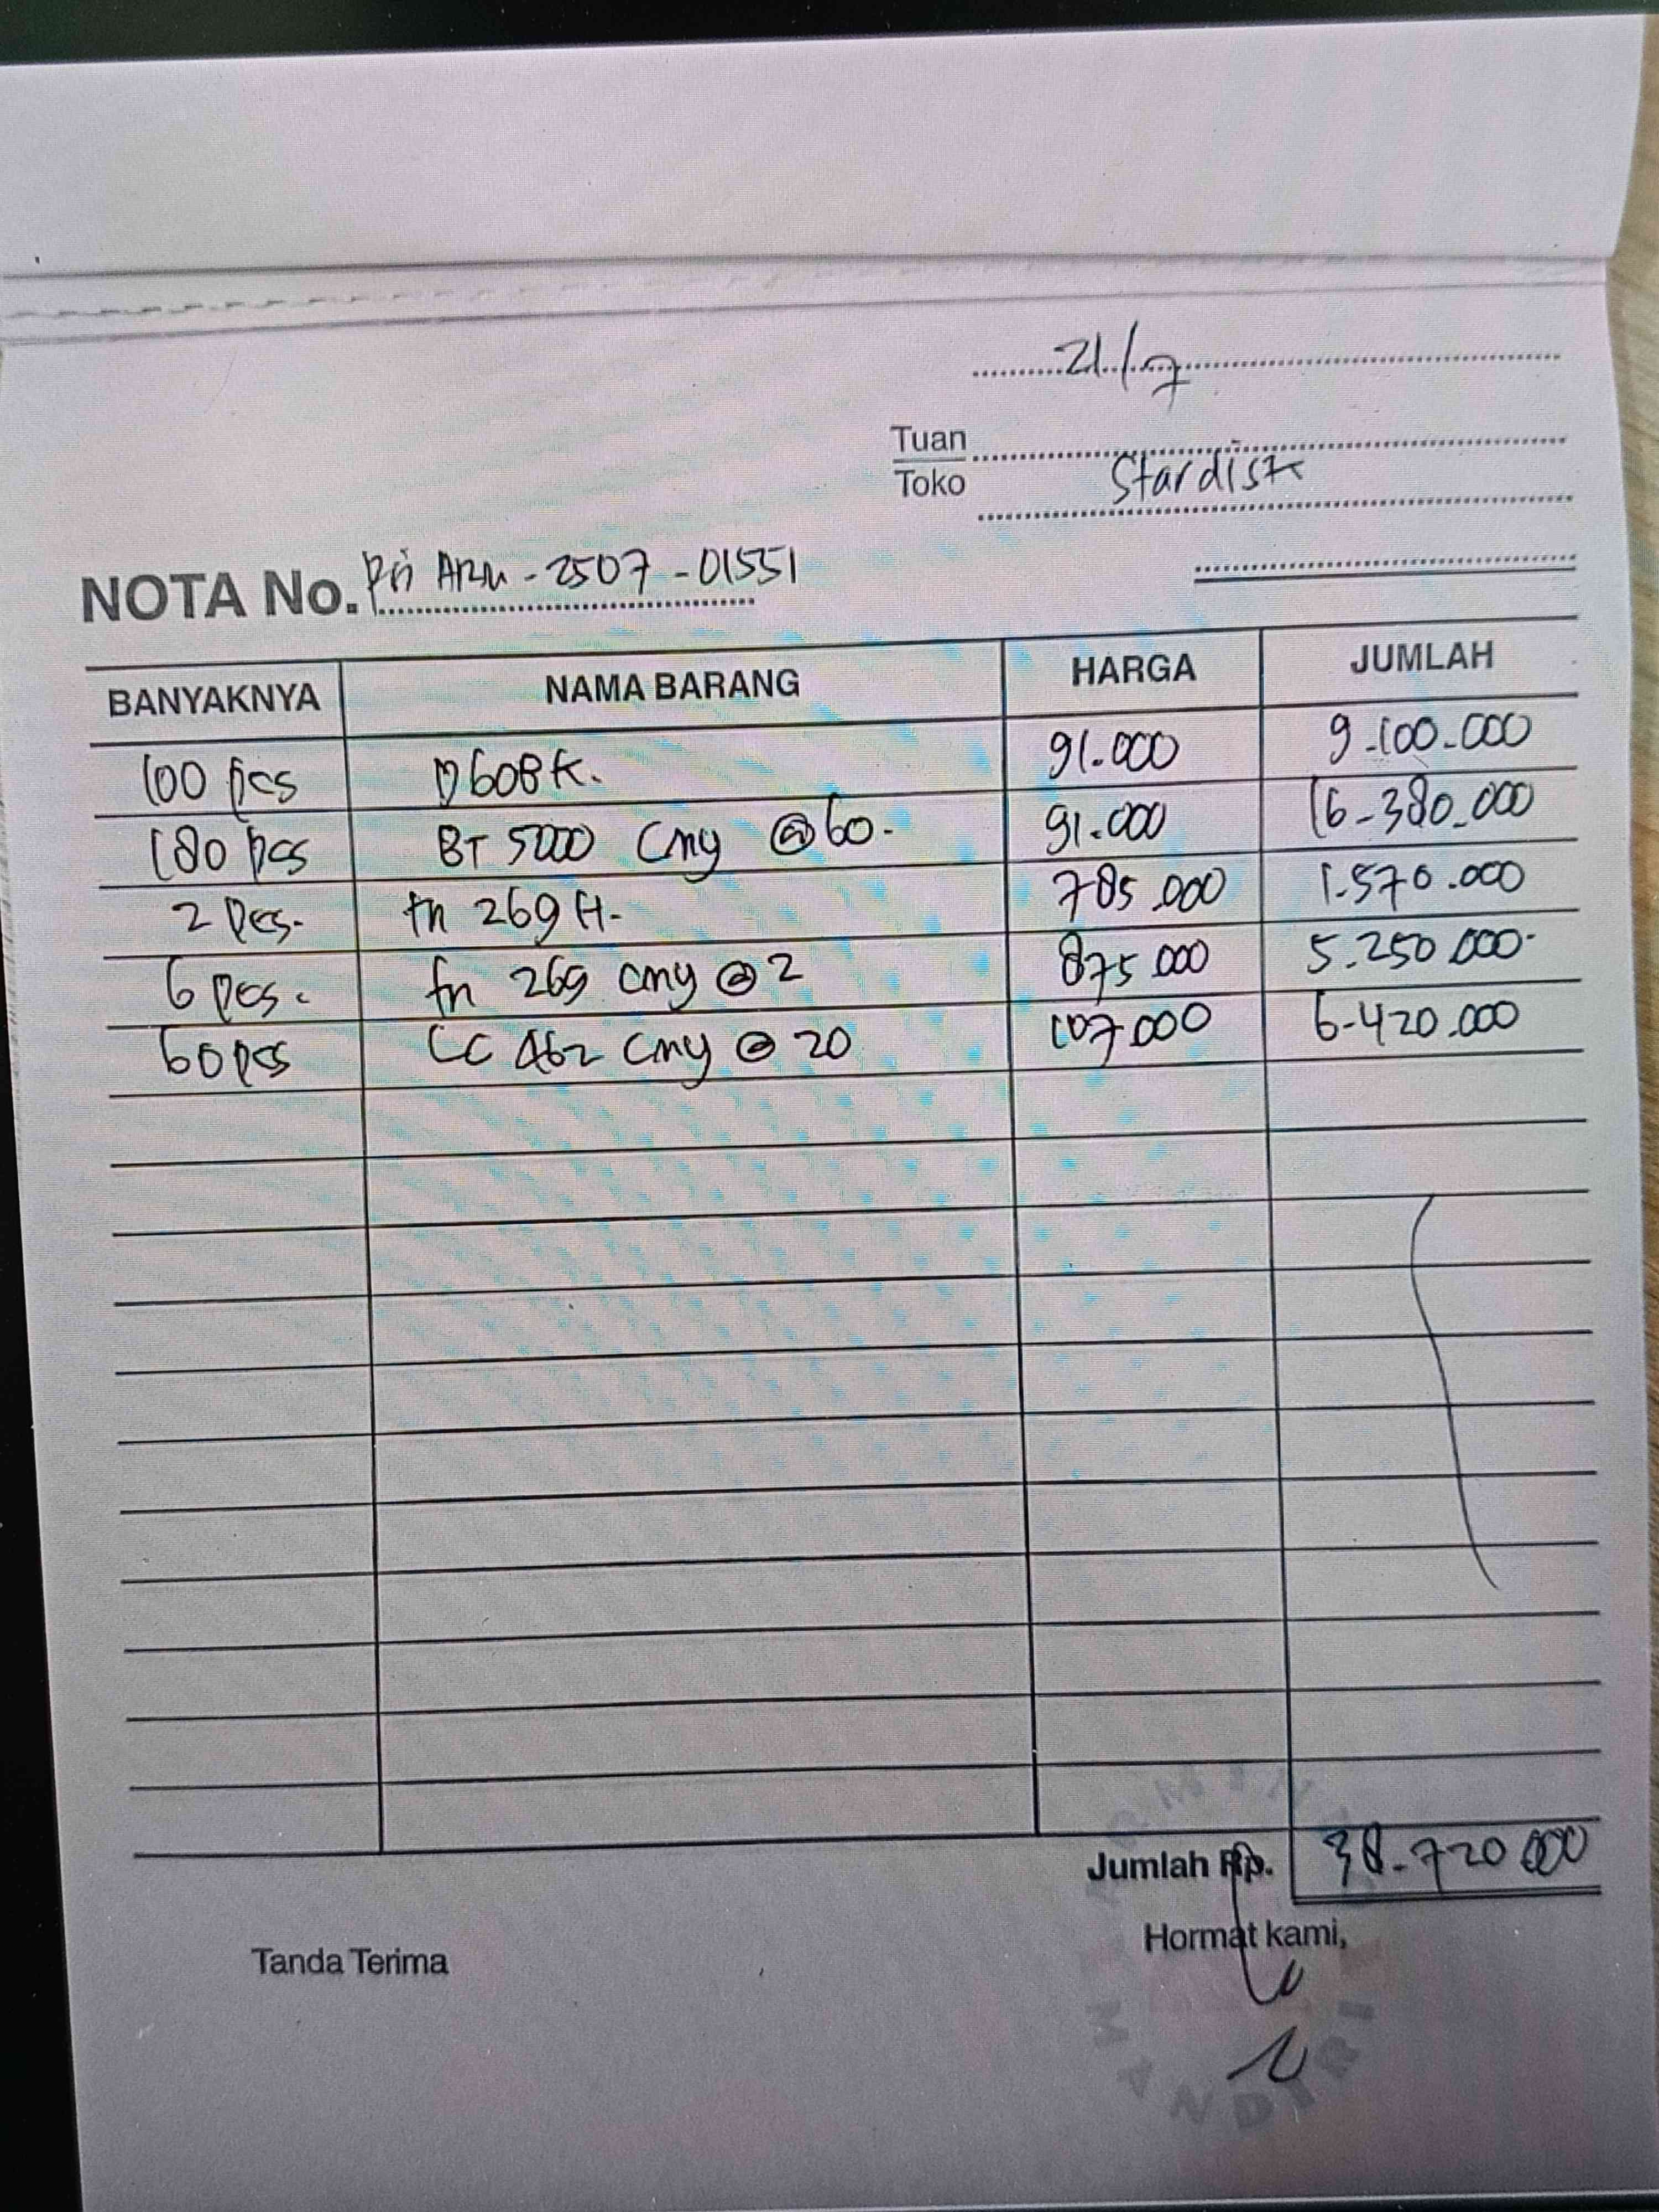 21/7
Tuan
Toko
Stardisk
NOTA No. ARM-2507-01551
BANYAKNYA NAMA BARANG HARGA JUMLAH
100 pcs D60BK. 91.000 9.100.000
180 pcs BT 5000 Cmy @60. 91.000 16.380.000
2 pcs. tn 269 H. 785.000 1.570.000
6 pcs. tn 269 cmy @ 2 875.000 5.250.000
60 pcs Cmy @ 20 107.000 6.420.000
Jumlah Rp. 38.720.000
Tanda Terima Hormat kami,
MANDIRI